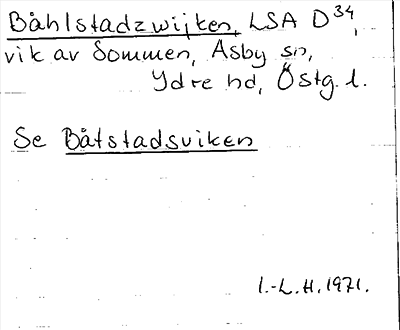 Båhlstadzwijken, LSA D34,
vik av Sommen, Asby sn,
Ydre hd, Östg. l.
Se Båtstadsviken
I.-L.H. 1971.